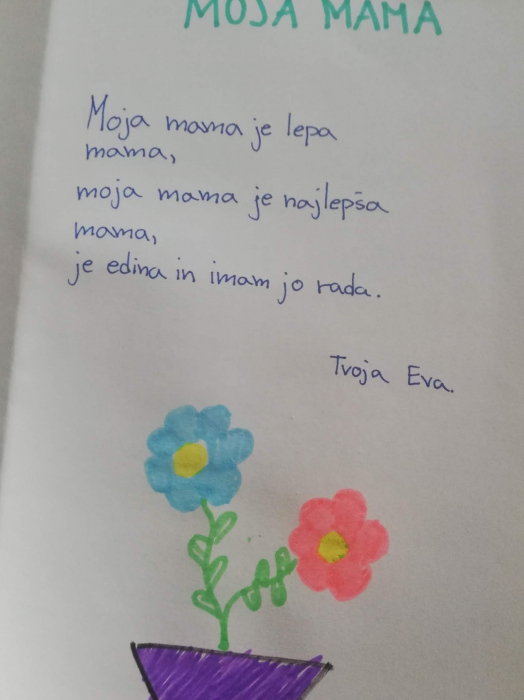 MOJA MAMA
Moja mama je lepa
mama,
moja mama je najlepša
mama,
je edina in imam jo rada.
Tvoja Eva.